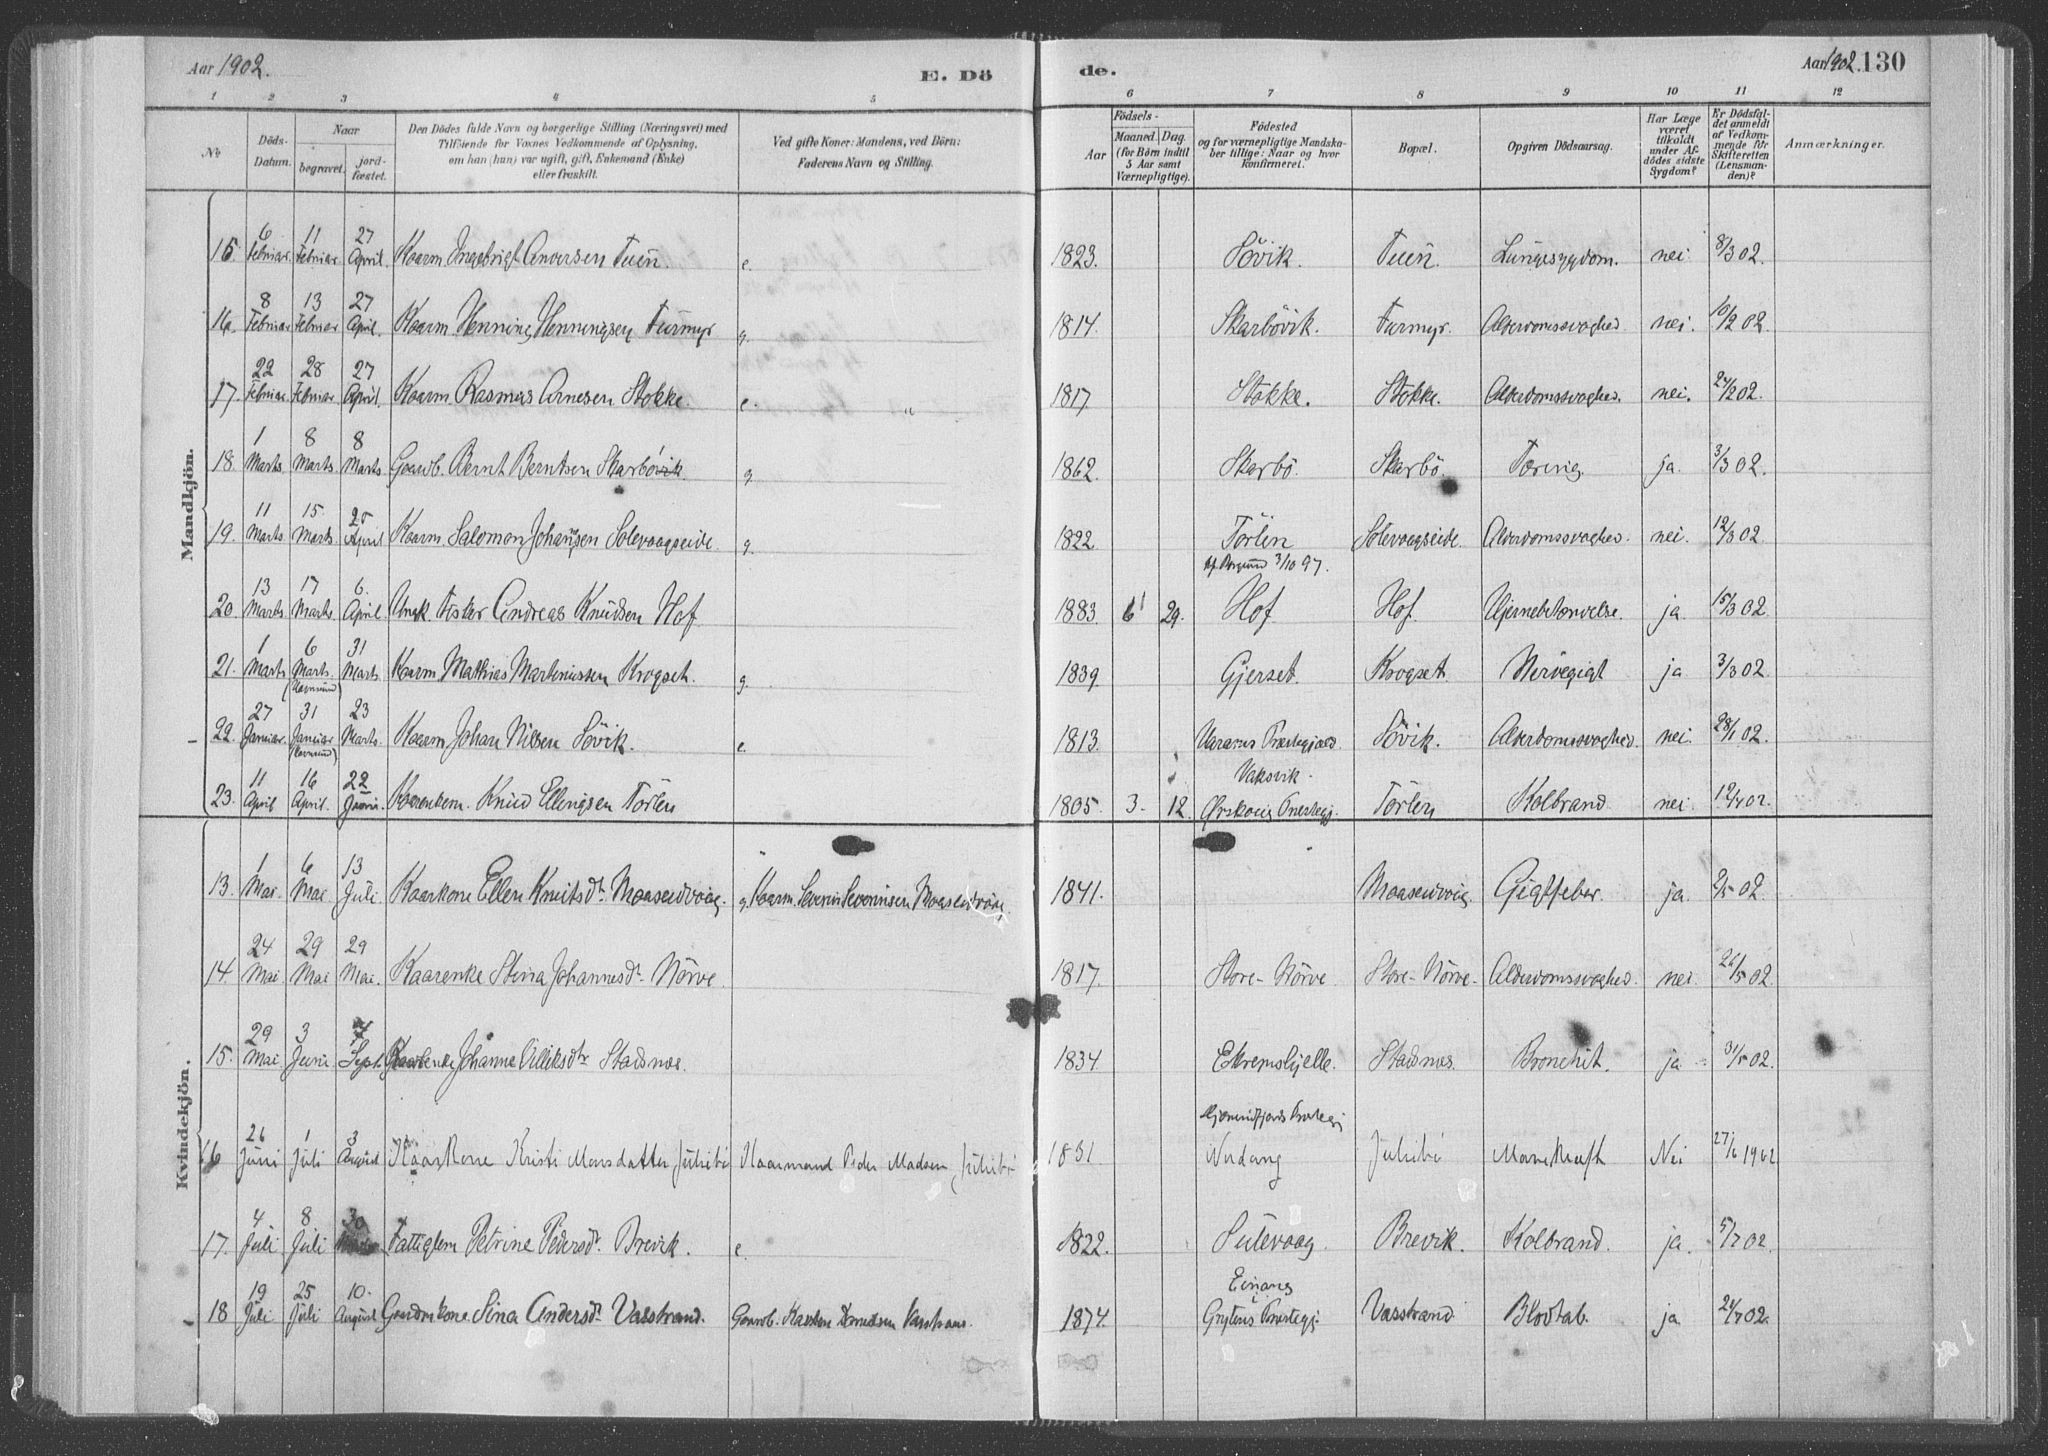 Aar 1902.
E. Dö
de.
Aar 1902. 130
1 2 3 4 5 6 7 8 9 10 11 12
No
Döds-Datum.
Naar
begravet.
jord-fæstet.
Den Dödes fulde Navn og borgerlige Stilling (Næringsvei) med
Tilföiende for Voxnes Vedkommende af Oplysning,
om han (hun) var ugift, gift, Enkemand (Enke)
eller fraskilt.
Ved gifte Koner: Mandens, ved Börn:
Faderens Navn og Stilling.
Födsels-
Aar
Maaned. Dag.
(for Börn indtil
5 Aar samt
Værnepligtige).
Födested
og for værnepligtige Mandska-
ber tillige: Naar og hvor
konfirmeret.
Bopæl.
Opgiven Dödsaarsag.
Har Læge
været
tilkaldt
under Af-
dödes sidste
Sygdom?
Er Dödsfal-
det anmeldt
af Vedkom-
mende för
Skifteretten
(Lensman-
den)?
Anmærkninger.
Mandkjön.
15. 6 Februar. 11 Februar. 27 April. Kaarm. Ingebrigt Andersen Tuen. e. 1823. Sövik. Tuen. Lungesygdom. nei. 8/3 02.
16. 8 Februar 13 Februar 27 April. Kaarm. Henning Henningsen Furmyr g. 1814. Skarbövik. Furmyr. Alderdomssvaghed. nei. 10/2 02.
17. 22 Februar. 28 Februar. 27 April. Kaarm. Rasmus Arnesen Stokke. e. " 1817 Stokke. Stokke. Alderdomssvaghed. nei. 24/2 02.
18. 1 Marts. 8 Marts. 8 Marts. Gaardb. Bernt Berntsen Skarbövik. g. 1862. Skarbö. Skarbö. Tæring. ja. 3/3 02.
19. 11 Marts. 15. Marts. 25 April Kaarm. Salomon Johansen Solevaagseide. g. 1822. Törlen Solevaagseide. Alderdomssvaghed. nei. 12/3 02.
20. 13 Marts. 17 Marts. 6. April. Ungk. Fisker Andreas Knudsen Hof 1883 6 29. kf. Borgund 3/10 97. Hof Hof. Hjernebetændelse. ja. 15/3 02.
21. 1 Marts 6 Marts. (Havnsund) 31 Marts. Kaarm. Mathias Martinussen Krogset. g. 1839. Gjerset. Krogset. Nervegigt ja 3/3 02.
22. 27 Januar. 31 Januar (Havnsund) 23 Marts. Kaarm. Johan Nilsen Sövik. e. 1813. Harams Præstegjæld. Sövik. Alderdomssvaghed. nei. 28/1 02.
23. 11 April 16 April. 22 Juni. Kaarenkem. Knud Ellingsen Törlen 1805. 3. 12. Vaksvik. Örskoug Præstegj. Törlen Kolbrand. nei. 12/4 02.
Kvindekjön.
13. 1 Mai. 6 Mai 13 Juli Kaarkone Ellen Knutsdtr Maaseidvaag. g. Kaarm. Severin Severinsen Maaseidvaag. 1841. Maaseidvaag. Gigtfeber. ja. 2/5 02.
14. 24 Mai. 29 Mai 29 Mai. Kaarenke Stina Johannesdtr Nörve. 1817. Store-Nörve Store-Nörve. Alderdomssvaghed. nei. 26/5 02.
15. 29 Mai 3 Juni 7 Sept. Johanne Villiksdtr Stadsnes. 1834. Ekremshjelle. Stadsnes. Bronchit. ja 31/5 02.
16 26 Juni 1 Juli 3 August Kaarkone Kristi Monsdatter Julibö Kaarmand Peder Madsen Julibö 1831 Hjörundfjords Prestegj Julibö Nei 27/6 1902
17. 4 Juli 8 Juli 30 Fattiglem Petrine Pedersdtr. Brevik. e. 1822. Sulevaag. Brevik. Kolbrand. ja. 5/7 02.
18 19 Juli 25 Juli 10. August Gaardmkone Sina Andersdtr Vasstrand. Gaardb. Karsten Knudsen Vasstrand. 1874. Einang Grytens Prestegj. Vasstrand Blodtab. ja 24/7 02.